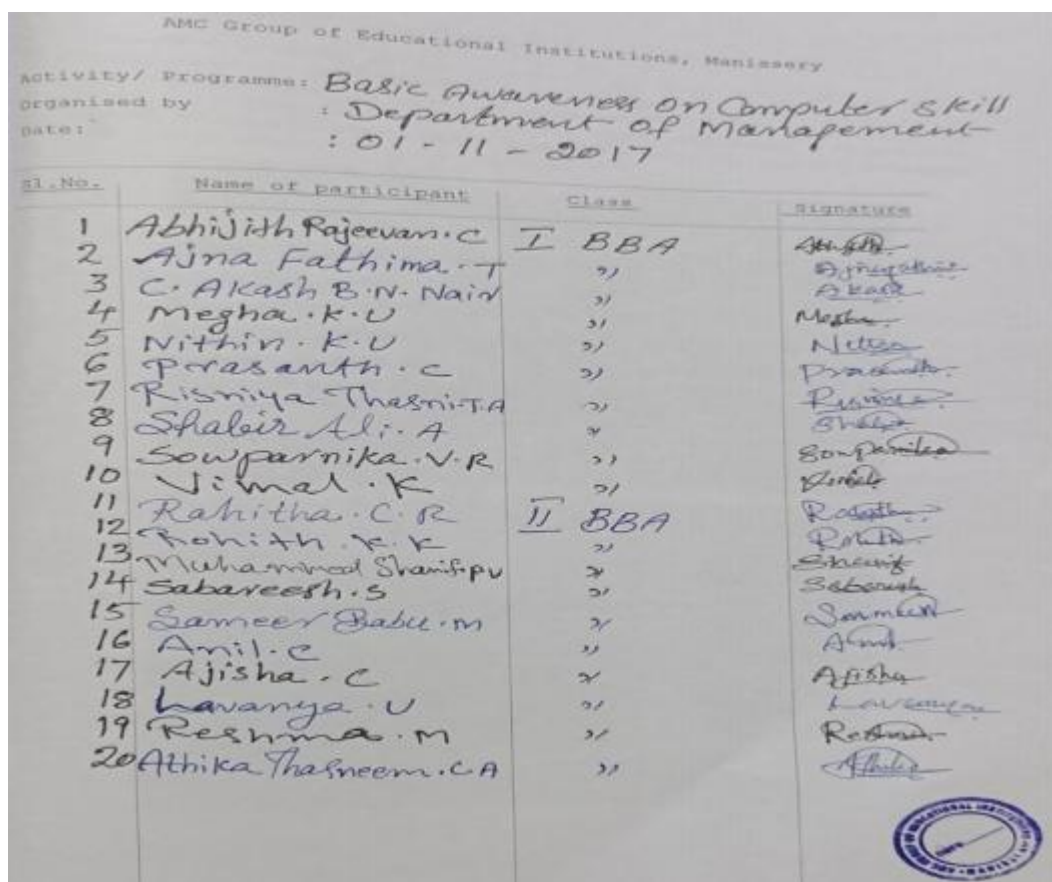 AMC Group of Educational Institutions, Manissery
Activity/ Programme: Basic Awareness on Computer skill
Organised by : Department of Management
Date: : 01-11-2017
Sl.No. Name of participant Class Signature
1 Abhijith Rajeevan.C I BBA
2 Ajna Fathima.T "
3 C. Akash B.N. Nair " Akash
4 Megha.K.U " Megha
5 Nithin.K.U "
6 Prasanth.C "
7 Risniya Thasni.T.A "
8 Shabir Ali.A "
9 Sowparnika.V.R " Sowparnika
10 Vimal.K "
11 Rahitha.C.R II BBA
12 Rohith.K.K "
13 Muhammed Sharif.pv "
14 Sabareesh.S "
15 Sameer Babu.m "
16 Anil.C "
17 Ajisha.C " Ajisha
18 Lavanya.U "
19 Reshma.M "
20 Athika Thasneem.C.A "